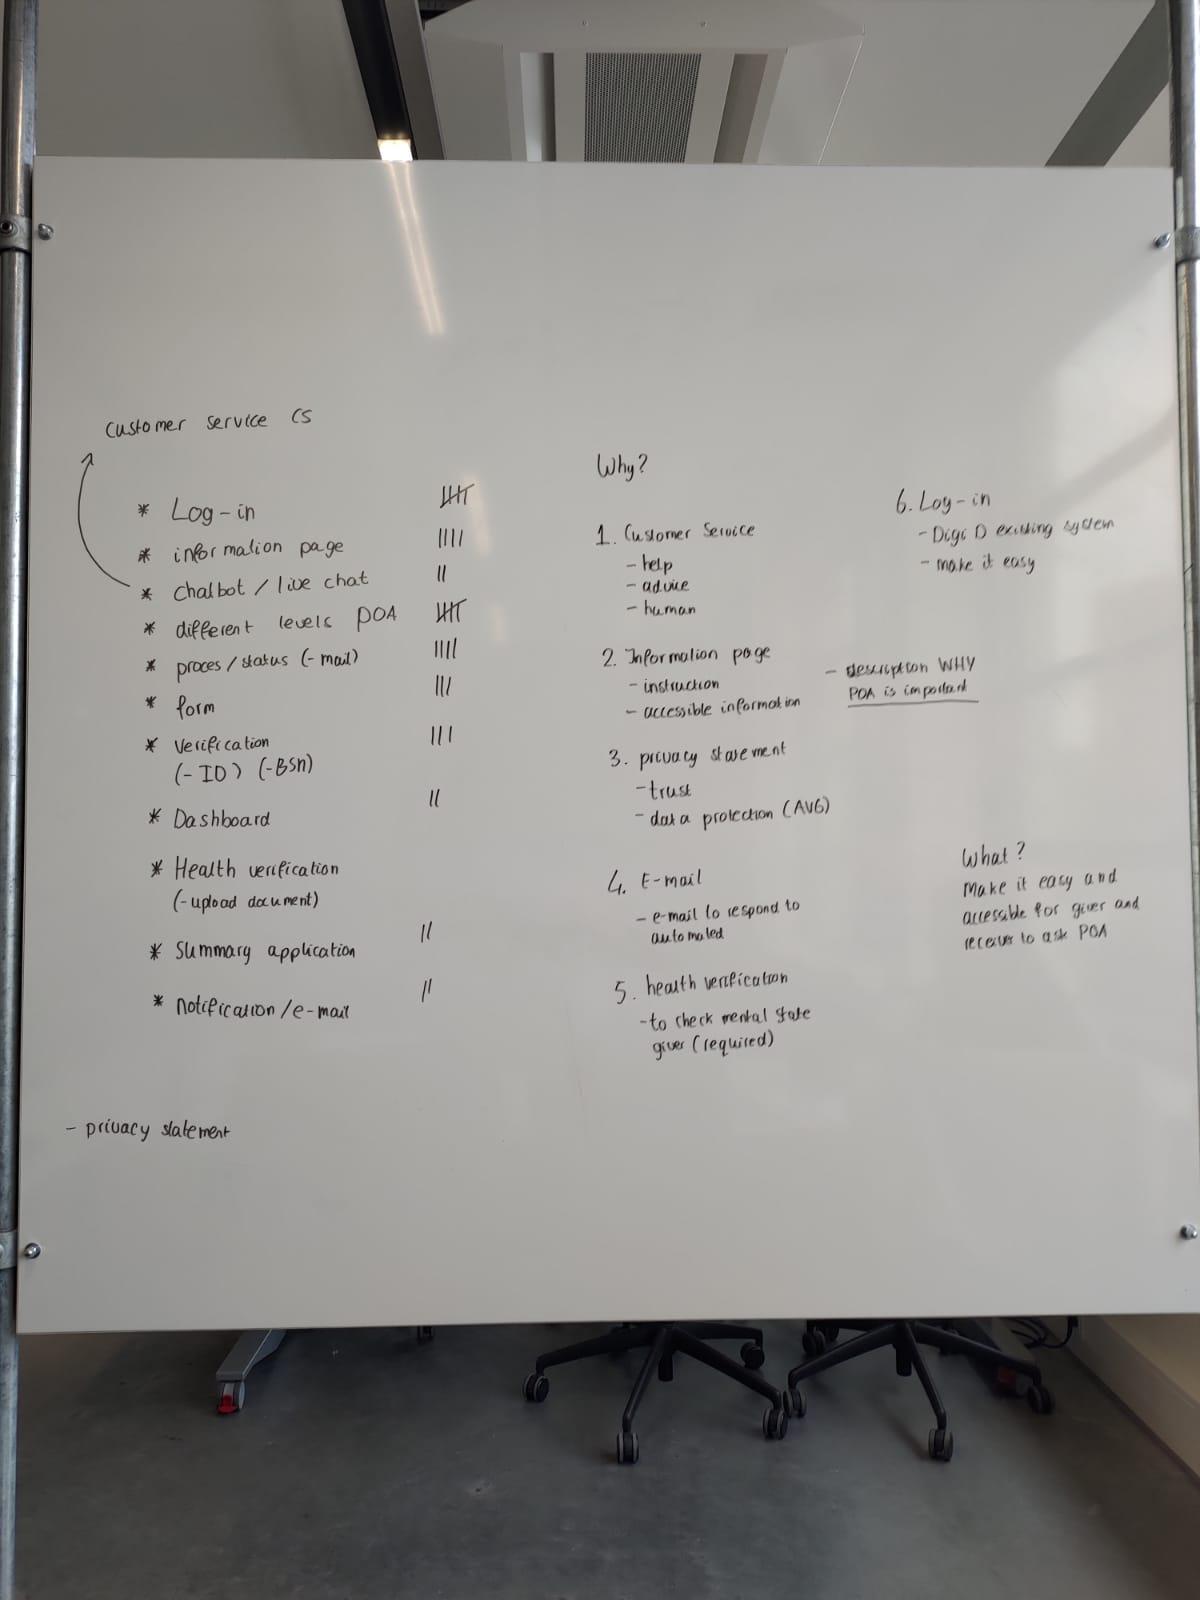 customer service CS
* Log-in 𝍸
* information page ||||
* Chatbot / live chat ||
* different levels POA 𝍸
* proces/status (- mail) ||||
* form |||
* Verification |||
(- ID) (-BSN)
* Dashboard ||
* Health verification
(-upload document)
* Summary application ||
* notification/e-mail ||
- privacy statement
Why?
1. Customer Service
- help
- advice
- human
2. Information page
- instruction
- accessible information
- description WHY
POA is important
3. privacy statement
- trust
- data protection (AVG)
4. E-mail
- e-mail to respond to
automated
5. health verification
- to check mental state
giver (required)
6. Log-in
- DigiD existing system
- make it easy
What?
Make it easy and
accessible for giver and
receiver to ask POA